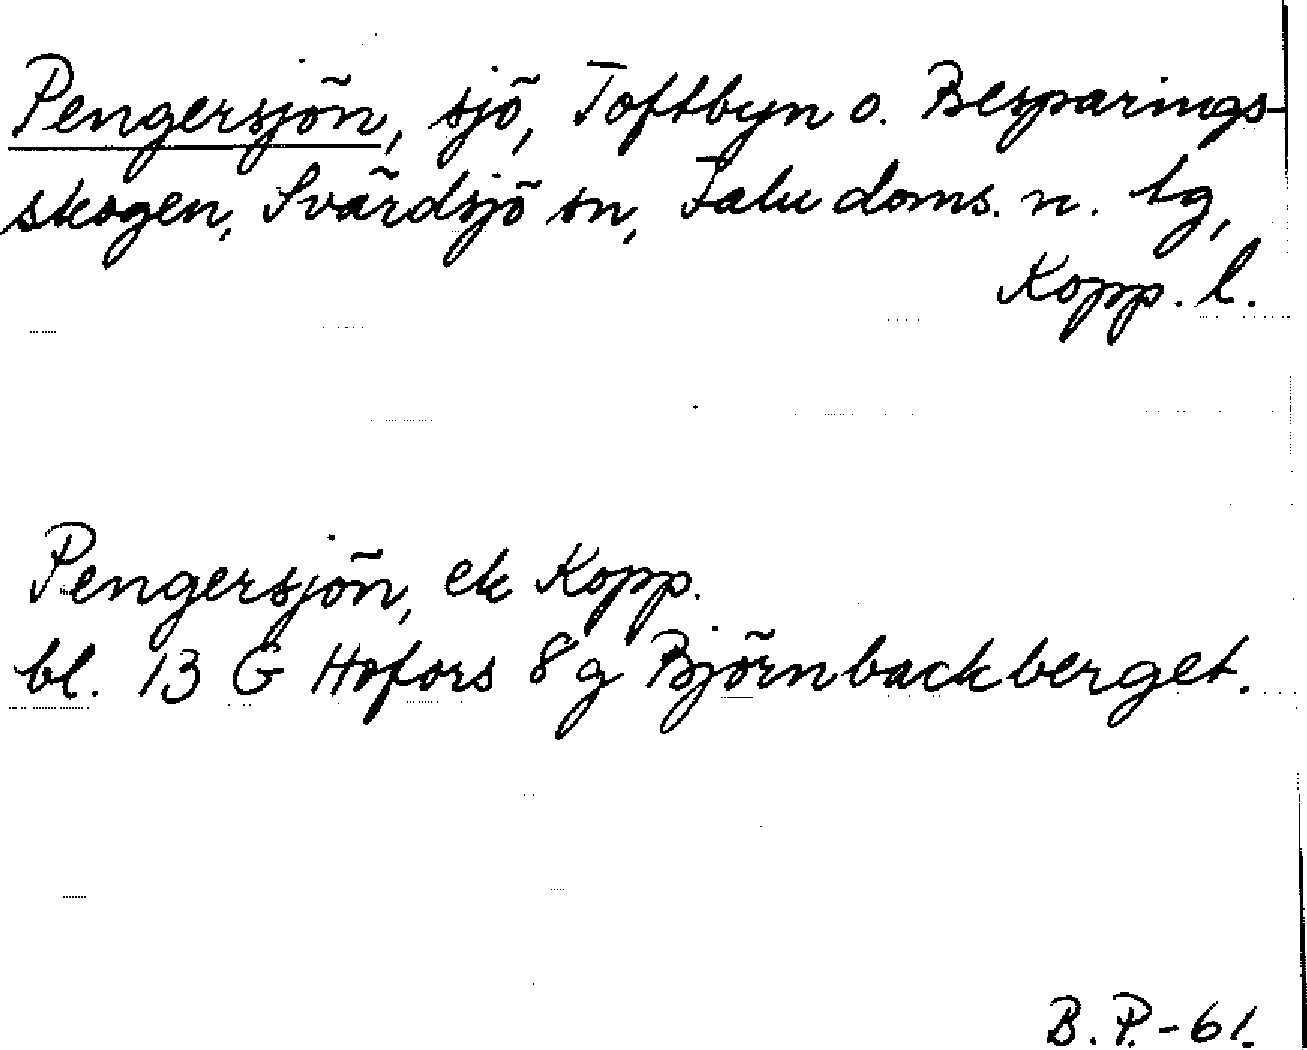 Pengersjön, sjö, Toftbyn o. Besparings-
skogen, Svärdsjö sn, Falu doms. n. tg,
Kopp. l.
Pengersjön, ek Kopp.
bl. 13 G Hofors 8 g Björnbackberget.
B. P. - 61.